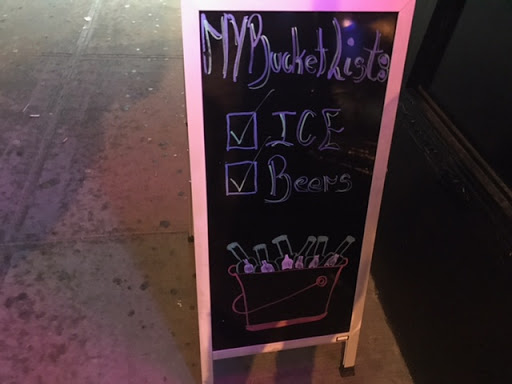 MY Bucket Lists
ICE
Beers